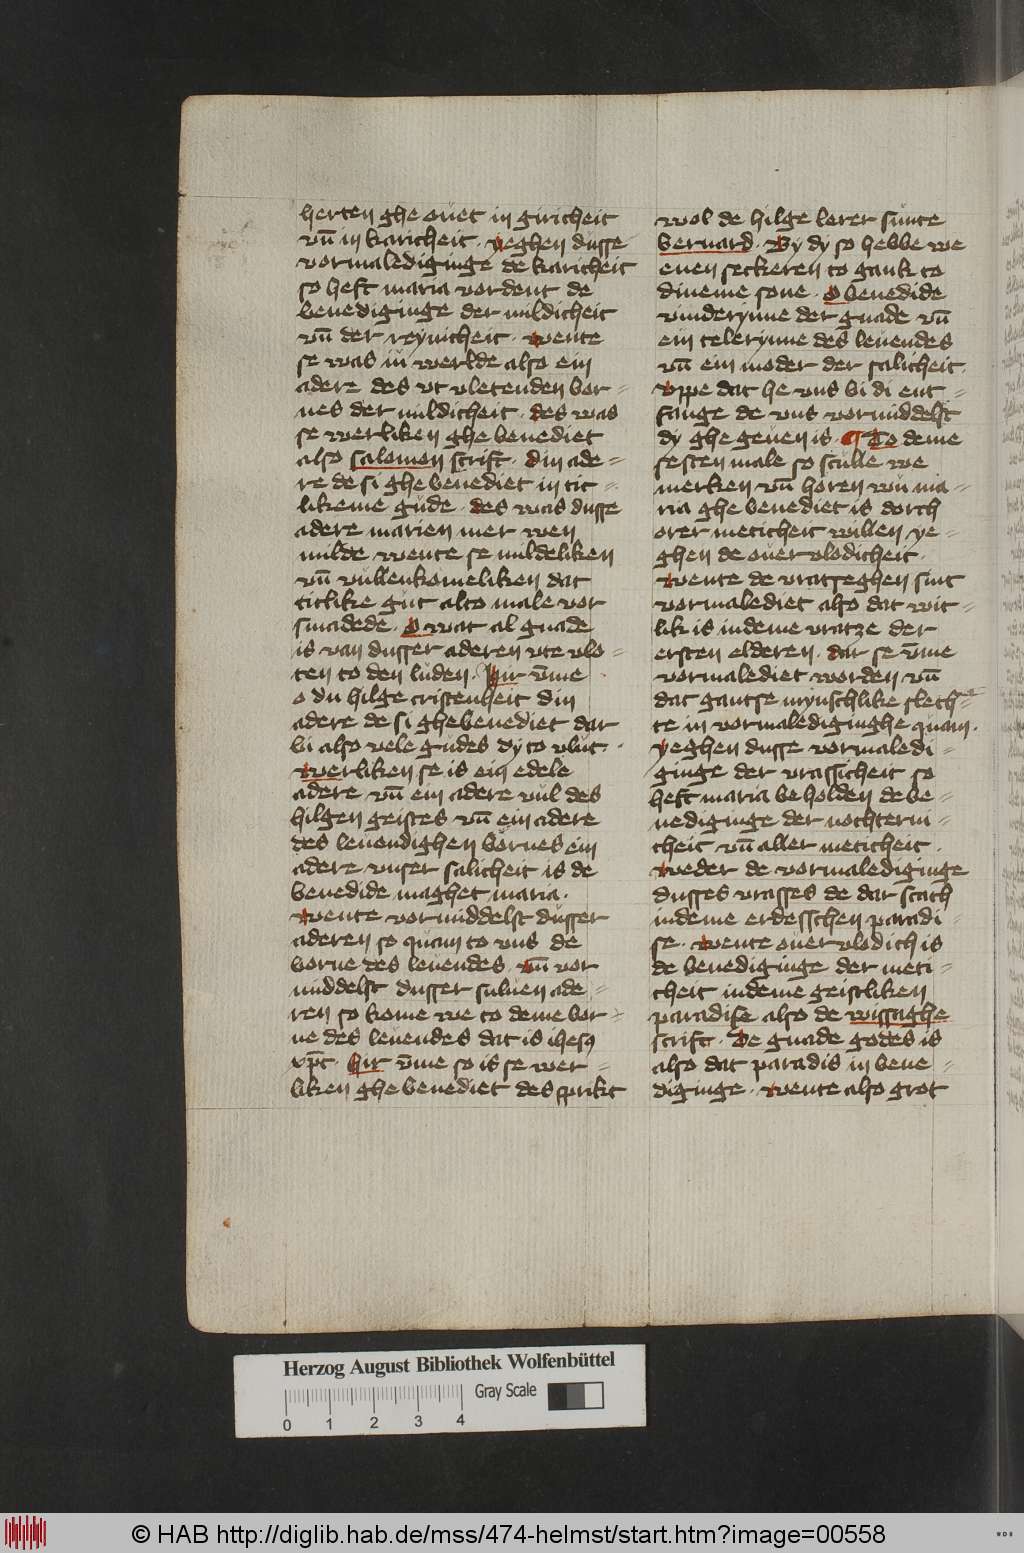 herten ghe ouet in giricheit
vn̄ in karicheit · yeghen dusse
vormalediginge de karicheit
so heft maria vordent de
benediginge der mildicheit
vn̄ der reynicheit · wente
se was in werlde also ein
adere des vt vletenden bor=
nes der mildicheit · des was
se werliken ghe benediet
also salomon scrift · din ade=
re de si ghe benediet in tit=
likeme gude · des was dusse
adere marien mer wen
milde wente se mildeliken
vn̄ vullenkomeliken dat
titlike gut alto male vor
smadede · O wat al gnade
is van dusser aderen vte vlo=
ten to den luden · Hir v̄me
o du hilge cristenheit din
adere de si ghebenediet dar
bi also vele gudes dy to vlut ·
werliken se is ein edele
adere vn̄ ein adere vul des
hilgen geistes vn̄ ein adere
des leuendighen bornes ein
adere vnser salicheit is de
benedide maghet maria ·
wente vormiddelst dusser
aderen so quam to vns de
borne des leuendes · vn̄ vor
middelst dusser suluen ade=
ren so kome we to deme bor=
ne des leuendes dat is ihesꝯ
xp̄c · hir v̄me so is se wer=
liken ghe benediet des sprikt
wol de hilge lerer sunte
bernard · By dy so hebbe we
enen seckeren to gank to
dineme sone · O benedide
vinderynne der gnade vn̄
ein telerynne des leuendes
vn̄ ein moder der salicheit ·
vppe dat he vns bi di ent=
fange de vns vormiddelst
dy ghe geuen is · ¶ To deme
sesten male so sculle we
merken vn̄ horen wu ma=
ria ghe benediet is dorch
orer meticheit willen ye=
ghen de ouer vlodicheit ·
wente de vratseghen sint
vormalediet also dat wit=
lik is indeme vratze der
ersten elderen · dar se v̄me
vormalediet worden vn̄
dat gantse mynschlike slech=
te in vormalediginghe quam ·
yeghen dusse vormaledi=
ginge der vrassicheit so
heft maria beholden de be=
nediginge der nochterni=
cheit vn̄ aller meticheit ·
weder de vormalediginge
dusses vrasses de dar scach
indeme erdesschen paradi=
se · wente ouer vlodich is
de benediginge der meti=
cheit indeme geistliken
paradise also de wissaghe
scrift · De gnade godes is
also dat paradis in bene=
diginge · wente also grot
Herzog August Bibliothek Wolfenbüttel
0 1 2 3 4
Gray Scale
© HAB http://diglib.hab.de/mss/474-helmst/start.htm?image=00558